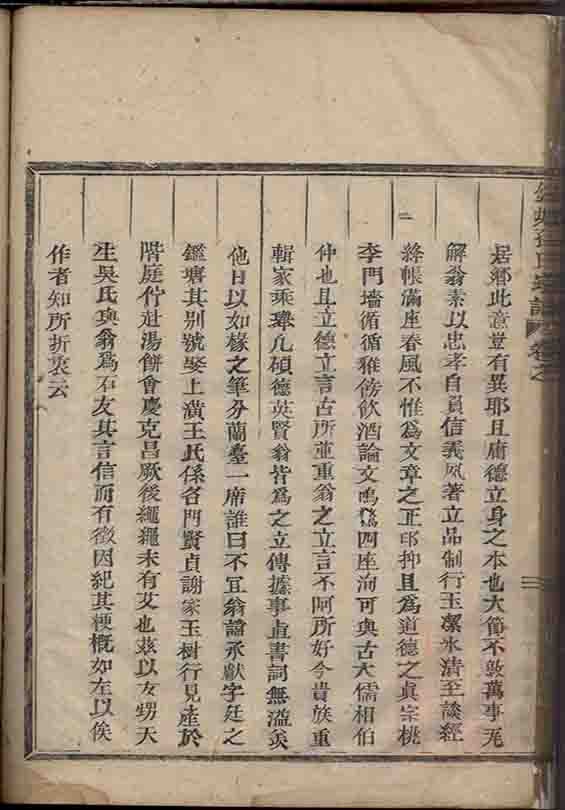 居鄉此意豈有異耶且庸德立身之本也大節不敦萬事瓦
解翁素以忠孝自負信義夙著立品制行玉潔氷清至談經
絳帳滿座春風不惟為文章之正印抑且為道德之真宗桃
李門墻循循雅飭飲酒論文鳴鶴四座洵可與古大儒相伯
仲也且立德立言古所並重翁之立言不阿所好今貴族重
輯家乘舉凡碩德英賢翁皆為之立傳據事直書詞無溢美
他日以如椽之筆分蘭臺一席誰曰不宜翁諱承獻字廷之
鑑塘其别號娶上潢王氏係名門賢貞謝家玉樹行見產於
階庭佇逓湯餅會慶克昌厥後繩繩未有艾也茲以友甥天
生吳氏與翁為石友其言信而有徵因紀其梗概如左以俟
作者知所折衷云
氏宗譜 卷之